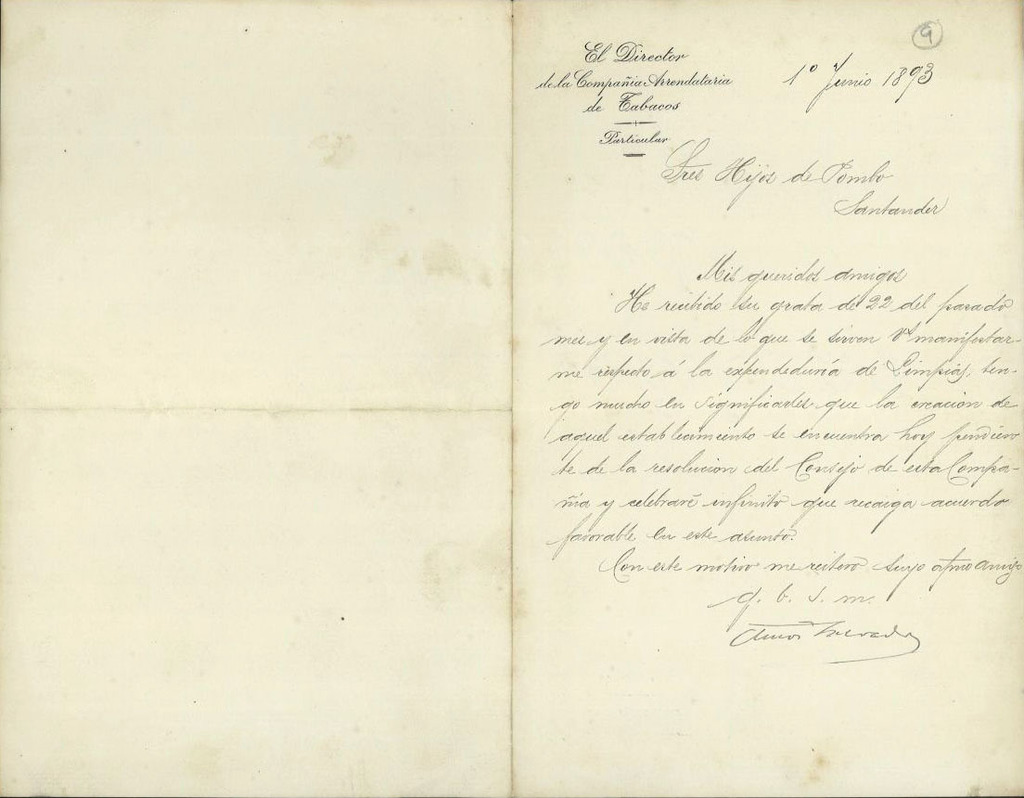 9
El Director
de la Compañia Arrendataria
de Tabacos
Particular
1º Junio 1893
Sres Hijos de Pombo
Santander
Mis queridos amigos
He recibido su grata de 22 del pasado
mes y en vista de lo que se sirven Vs manifestar-
me respecto á la expendeduría de Limpias, ten-
go mucho en significarles que la creacion de
aquel establecimiento se encuentra hoy pendien-
te de la resolucion del Consejo de esta Compa-
ñia y celebraré infinito que recaiga acuerdo
favorable en este asunto.
Con este motivo me reitero suyo afmo amigo
q. b. s. m.
Amos Salvador